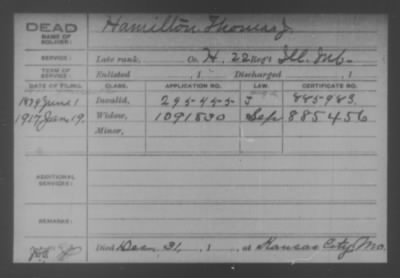 DEAD Hamilton Thomas J.
NAME OF
SOLDIER:
SERVICE: Late rank, Co. H, 22 Reg't Ill. Inf.
TERM OF
SERVICE: Enlisted , 1 Discharged , 1
DATE OF FILING. CLASS. APPLICATION NO. LAW. CERTIFICATE NO.
1879 June 1 Invalid, 295.455 885.983
1917 Jan. 19. Widow, 1091830 Sep 885456
Minor,
ADDITIONAL
SERVICES:
REMARKS:
Died Dec. 31, 1 , at Kansas City, Mo.